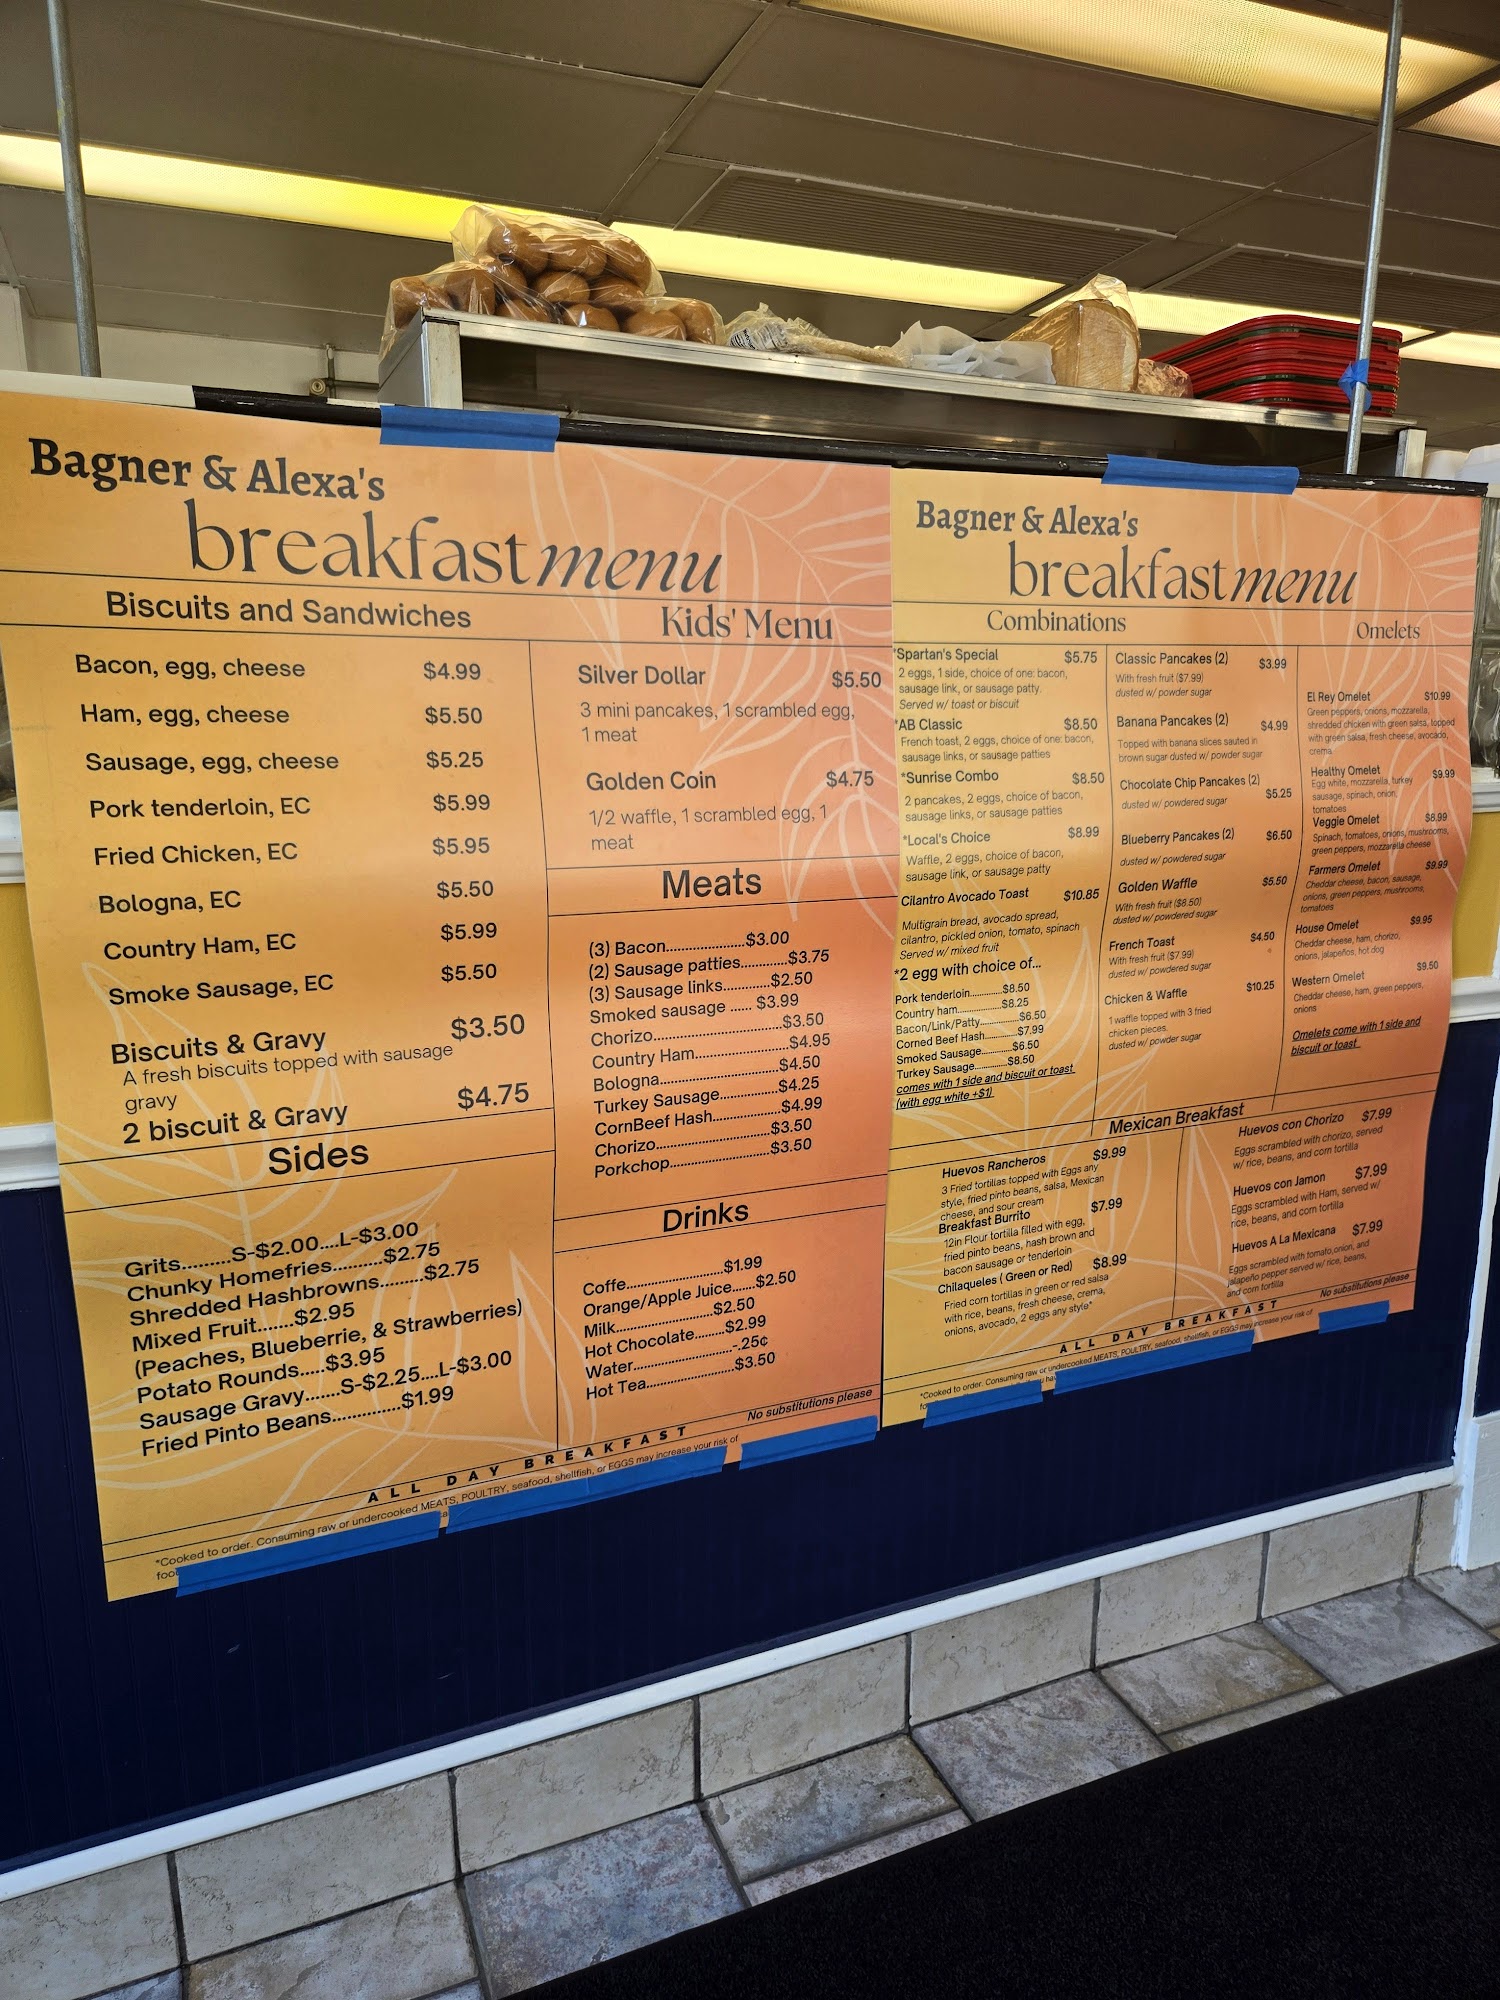 Bagner & Alexa's
breakfast menu
Biscuits and Sandwiches
Bacon, egg, cheese $4.99
Ham, egg, cheese $5.50
Sausage, egg, cheese $5.25
Pork tenderloin, EC $5.99
Fried Chicken, EC $5.95
Bologna, EC $5.50
Country Ham, EC $5.99
Smoke Sausage, EC $5.50
Biscuits & Gravy $3.50
A fresh biscuits topped with sausage
gravy
2 biscuit & Gravy $4.75
Sides
Grits.........S-$2.00....L-$3.00
Chunky Homefries.........$2.75
Shredded Hashbrowns........$2.75
Mixed Fruit.......$2.95
(Peaches, Blueberrie, & Strawberries)
Potato Rounds.....$3.95
Sausage Gravy.......S-$2.25....L-$3.00
Fried Pinto Beans..............$1.99
Kids' Menu
Silver Dollar $5.50
3 mini pancakes, 1 scrambled egg,
1 meat
Golden Coin $4.75
1/2 waffle, 1 scrambled egg, 1
meat
Meats
(3) Bacon......................$3.00
(2) Sausage patties.............$3.75
(3) Sausage links.............$2.50
Smoked sausage ...... $3.99
Chorizo...........................$3.50
Country Ham....................$4.95
Bologna.........................$4.50
Turkey Sausage................$4.25
CornBeef Hash...................$4.99
Chorizo........................$3.50
Porkchop........................$3.50
Drinks
Coffe........................$1.99
Orange/Apple Juice.......$2.50
Milk....................$2.50
Hot Chocolate........$2.99
Water.....................-.25¢
Hot Tea...................$3.50
No substitutions please
ALL DAY BREAKFAST
*Cooked to order. Consuming raw or undercooked MEATS, POULTRY, seafood, shellfish, or EGGS may increase your risk of
Bagner & Alexa's
breakfast menu
Combinations
*Spartan's Special $5.75
2 eggs, 1 side, choice of one: bacon,
sausage link, or sausage patty.
Served w/ toast or biscuit
*AB Classic $8.50
French toast, 2 eggs, choice of one: bacon,
sausage links, or sausage patties
*Sunrise Combo $8.50
2 pancakes, 2 eggs, choice of bacon,
sausage links, or sausage patties
*Local's Choice $8.99
Waffle, 2 eggs, choice of bacon,
sausage link, or sausage patty
Cilantro Avocado Toast $10.85
Multigrain bread, avocado spread,
cilantro, pickled onion, tomato, spinach
Served w/ mixed fruit
*2 egg with choice of...
Pork tenderloin............$8.50
Country ham................$8.25
Bacon/Link/Patty..............$6.50
Corned Beef Hash............$7.99
Smoked Sausage...........$6.50
Turkey Sausage...........$8.50
comes with 1 side and biscuit or toast
(with egg white +$1)
Classic Pancakes (2) $3.99
With fresh fruit ($7.99)
dusted w/ powder sugar
Banana Pancakes (2) $4.99
Topped with banana slices sauted in
brown sugar dusted w/ powder sugar
Chocolate Chip Pancakes (2) $5.25
dusted w/ powdered sugar
Blueberry Pancakes (2) $6.50
dusted w/ powdered sugar
Golden Waffle $5.50
With fresh fruit ($8.50)
dusted w/ powdered sugar
French Toast $4.50
With fresh fruit ($7.99)
dusted w/ powdered sugar
Chicken & Waffle $10.25
1 waffle topped with 3 fried
chicken pieces.
dusted w/ powdered sugar
Omelets
El Rey Omelet $10.99
Green peppers, onions, mozzarella,
shredded chicken with green salsa, topped
with green salsa, fresh cheese, avocado,
crema
Healthy Omelet $9.99
Egg white, mozzarella, turkey
sausage, spinach, onion,
tomatoes
Veggie Omelet $8.99
Spinach, tomatoes, onions, mushrooms,
green peppers, mozzarella cheese
Farmers Omelet $9.99
Cheddar cheese, bacon, sausage,
onions, green peppers, mushrooms,
tomatoes
House Omelet $9.95
Cheddar cheese, ham, chorizo,
onions, jalapeños, hot dog
Western Omelet $9.50
Cheddar cheese, ham, green peppers,
onions
Omelets come with 1 side and
biscuit or toast
Mexican Breakfast
Huevos Rancheros $9.99
3 Fried tortillas topped with Eggs any
style, fried pinto beans, salsa, Mexican
cheese, and sour cream
Breakfast Burrito $7.99
12in Flour tortilla filled with egg,
fried pinto beans, hash brown and
bacon sausage or tenderloin
Chilaqueles ( Green or Red) $8.99
Fried corn tortillas in green or red salsa
with rice, beans, fresh cheese, crema,
onions, avocado, 2 eggs any style*
Huevos con Chorizo $7.99
Eggs scrambled with chorizo, served
w/ rice, beans, and corn tortilla
Huevos con Jamon $7.99
Eggs scrambled with Ham, served w/
rice, beans, and corn tortilla
Huevos A La Mexicana $7.99
Eggs scrambled with tomato,onion, and
jalapeño pepper served w/ rice, beans,
and corn tortilla
No substitutions please
ALL DAY BREAKFAST
*Cooked to order. Consuming raw or undercooked MEATS, POULTRY, seafood, shellfish, or EGGS may increase your risk of